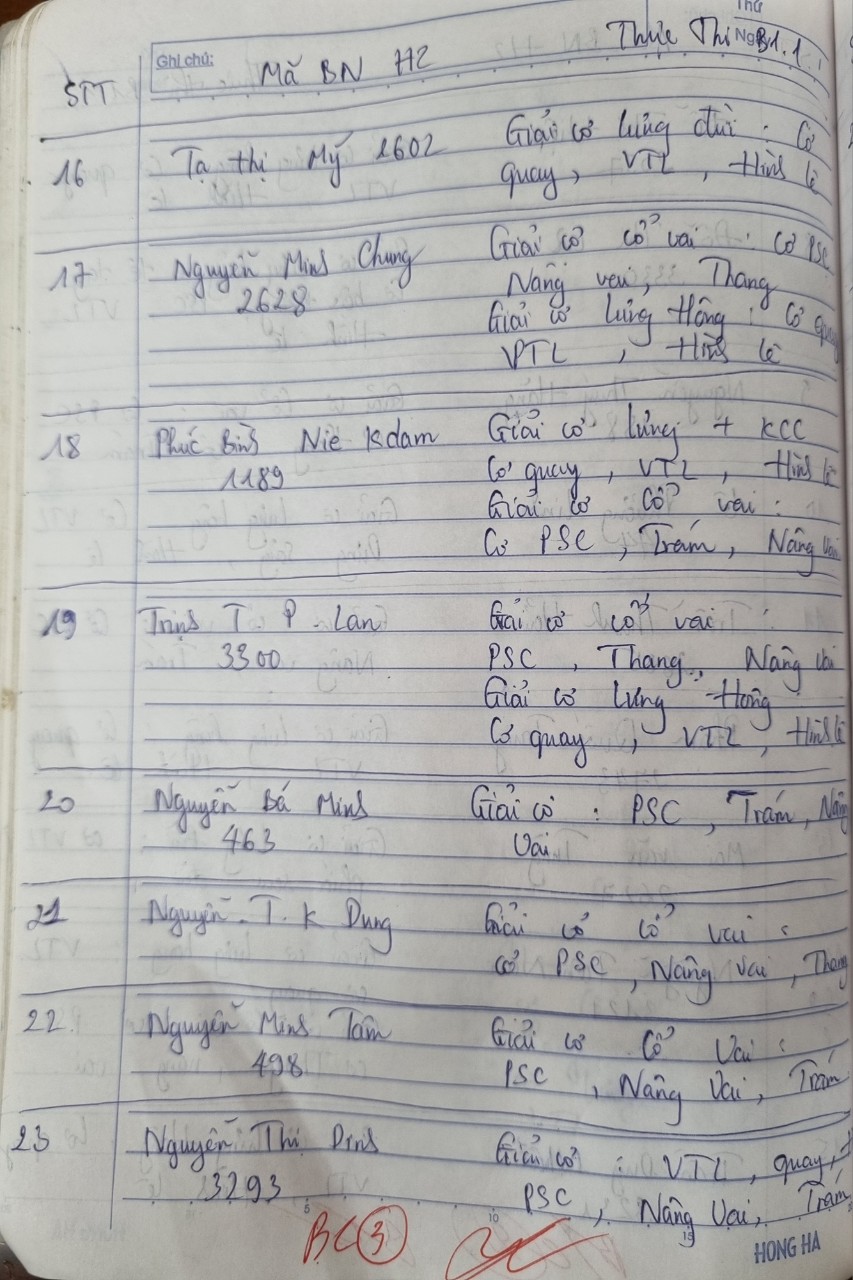 Thứ
Ghi chú:
Thực Thi Ng B1.1
STT Mã BN H2
16 Tạ Thị Mỹ 1602 Giải cơ lưng đùi : Cơ
quay, VTL, Hình lê
17 Nguyễn Minh Chung Giải cơ cổ vai : cơ PSC
2628 Nâng vai, Thang
Giải cơ lưng Hông : Cơ quay
VTL, Hình lê
18 Phúc Bình Niê Kdam Giải cơ lưng + KCC
1189 Cơ quay, VTL, Hình lê
Giải cơ Cổ vai :
Cơ PSC, Trám, Nâng vai
19 Trịnh T P. Lan Giải cơ cổ vai :
3300 PSC, Thang, Nâng vai
Giải cơ lưng Hông
Cơ quay, VTL, Hình lê
20 Nguyễn Bá Minh Giải cơ : PSC, Trám, Nâng
463 Vai
21 Nguyễn. T. K Dung Giải cơ cổ vai :
cơ PSC, Nâng vai, Thang
22 Nguyễn Minh Tâm Giải cơ Cổ Vai :
498 PSC, Nâng Vai, Trám
23 Nguyễn Thị Dinh Giải cơ : VTL, quay,
3293 PSC, Nâng Vai, Trám
BC 3
5 10 15
HONG HA